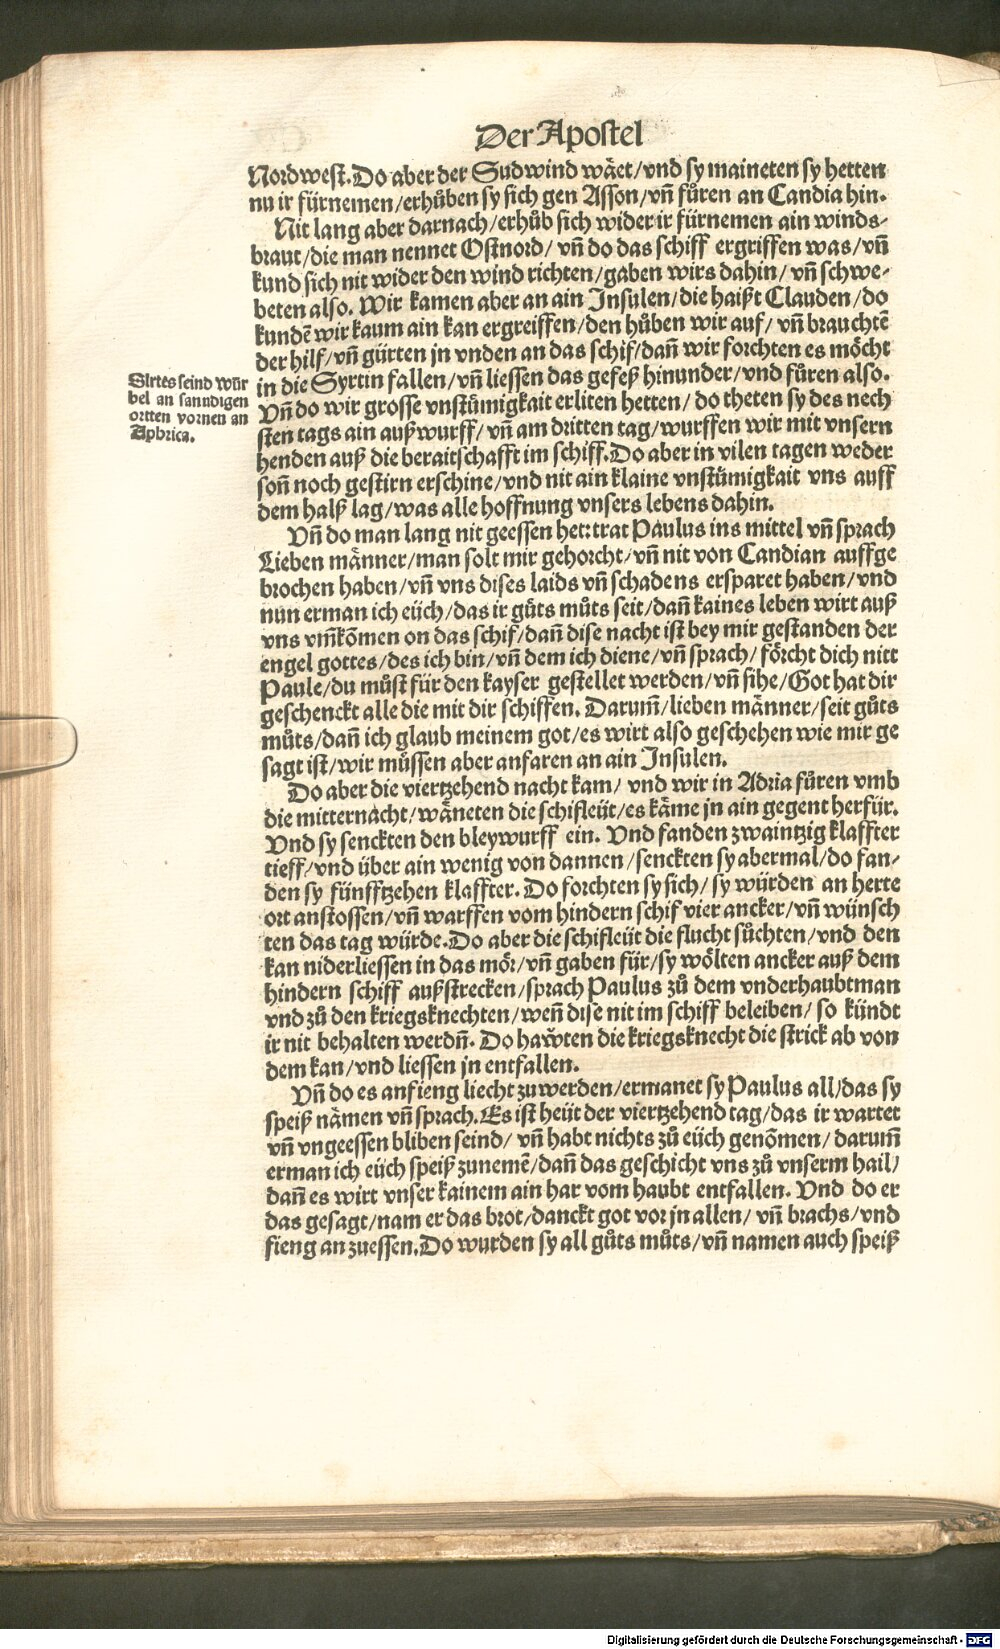 Der Apostel
Nordwest. Do aber der Sudwind wäet/vnd sy maineten sy hetten
nu ir fürnemen/erhůben sy sich gen Asson/vñ fůren an Candia hin.
Nit lang aber darnach/erhůb sich wider ir fürnemen ain winds-
braut/die man nennet Ostnord/ vñ do das schiff ergriffen was/vñ
kund sich nit wider den wind richten/gaben wirs dahin/vñ schwe-
beten also. Wir kamen aber an ain Insulen/die haißt Clauden/do
kundẽ wir kaum ain kan ergreiffen/den hůben wir auf/ vñ brauchtẽ
der hilf/vñ gürten jn vnden an das schif/dañ wir forchten es möcht
in die Syrtin fallen/vñ liessen das gefeß hinunder/vnd fůren also.
Sirtes seind wür
bel an sanndigen
ortten vornen an
Aphrica.
Vñ do wir grosse vnstümigkait erliten hetten/ do theten sy des nech
sten tags ain außwurff/ vñ am dritten tag/wurffen wir mit vnsern
henden auß die beraitschafft im schiff. Do aber in vilen tagen weder
soñ noch gestirn erschine/vnd nit ain klaine vnstümigkait vns auff
dem halß lag/was alle hoffnung vnsers lebens dahin.
Vñ do man lang nit geessen het: trat Paulus ins mittel vñ sprach
Lieben männer/man solt mir gehorcht/vñ nit von Candian auffge
brochen haben/vñ vns dises laids vñ schadens ersparet haben/vnd
nun erman ich eüch/das ir gůts můts seit/dañ kaines leben wirt auß
vns vm̃kõmen on das schif/dañ dise nacht ist bey mir gestanden der
engel gottes/des ich bin/vñ dem ich diene/vñ sprach/förcht dich nitt
Paule/du můst für den kayser gestellet werden/vñ sihe/Got hat dir
geschenckt alle die mit dir schiffen. Darum̃/lieben männer/seit gůts
můts/dañ ich glaub meinem got/es wirt also geschehen wie mir ge
sagt ist/wir müssen aber anfaren an ain Insulen.
Do aber die viertzehend nacht kam/ vnd wir in Adria fůren vmb
die mitternacht/wäneten die schifleüt/es käme jn ain gegent herfür.
Vnd sy senckten den bleywurff ein. Vnd fanden zwaintzig klaffter
tieff/vnd über ain wenig von dannen/senckten sy abermal/do fan-
den sy fünfftzehen klaffter. Do forchten sy sich/sy würden an herte
ort anstossen/vñ warffen vom hindern schif vier ancker/vñ wünsch
ten das tag würde. Do aber die schifleüt die flucht sůchten/vnd den
kan niderliessen in das mör/vñ gaben für/sy wölten ancker auß dem
hindern schiff außstrecken/sprach Paulus zů dem vnderhaubtman
vnd zů den kriegsknechten/weñ dise nit im schiff beleiben/ so kündt
ir nit behalten werdñ. Do hawten die kriegsknecht die strick ab von
dem kan/vnd liessen jn entfallen.
Vñ do es anfieng liecht zuwerden/ermanet sy Paulus all/das sy
speiß nämen vñ sprach. Es ist heüt der viertzehend tag/das ir wartet
vñ vngeessen bliben seind/ vñ habt nichts zů eüch genõmen/ darum̃
erman ich eüch speiß zunemẽ/dañ das geschicht vns zů vnserm hail/
dañ es wirt vnser kainem ain har vom haubt entfallen. Vnd do er
das gesagt/nam er das brot/danckt got vor jn allen/ vñ brachs/vnd
fieng an zuessen. Do wurden sy all gůts můts/vñ namen auch speiß
Digitalisierung gefördert durch die Deutsche Forschungsgemeinschaft - DFG